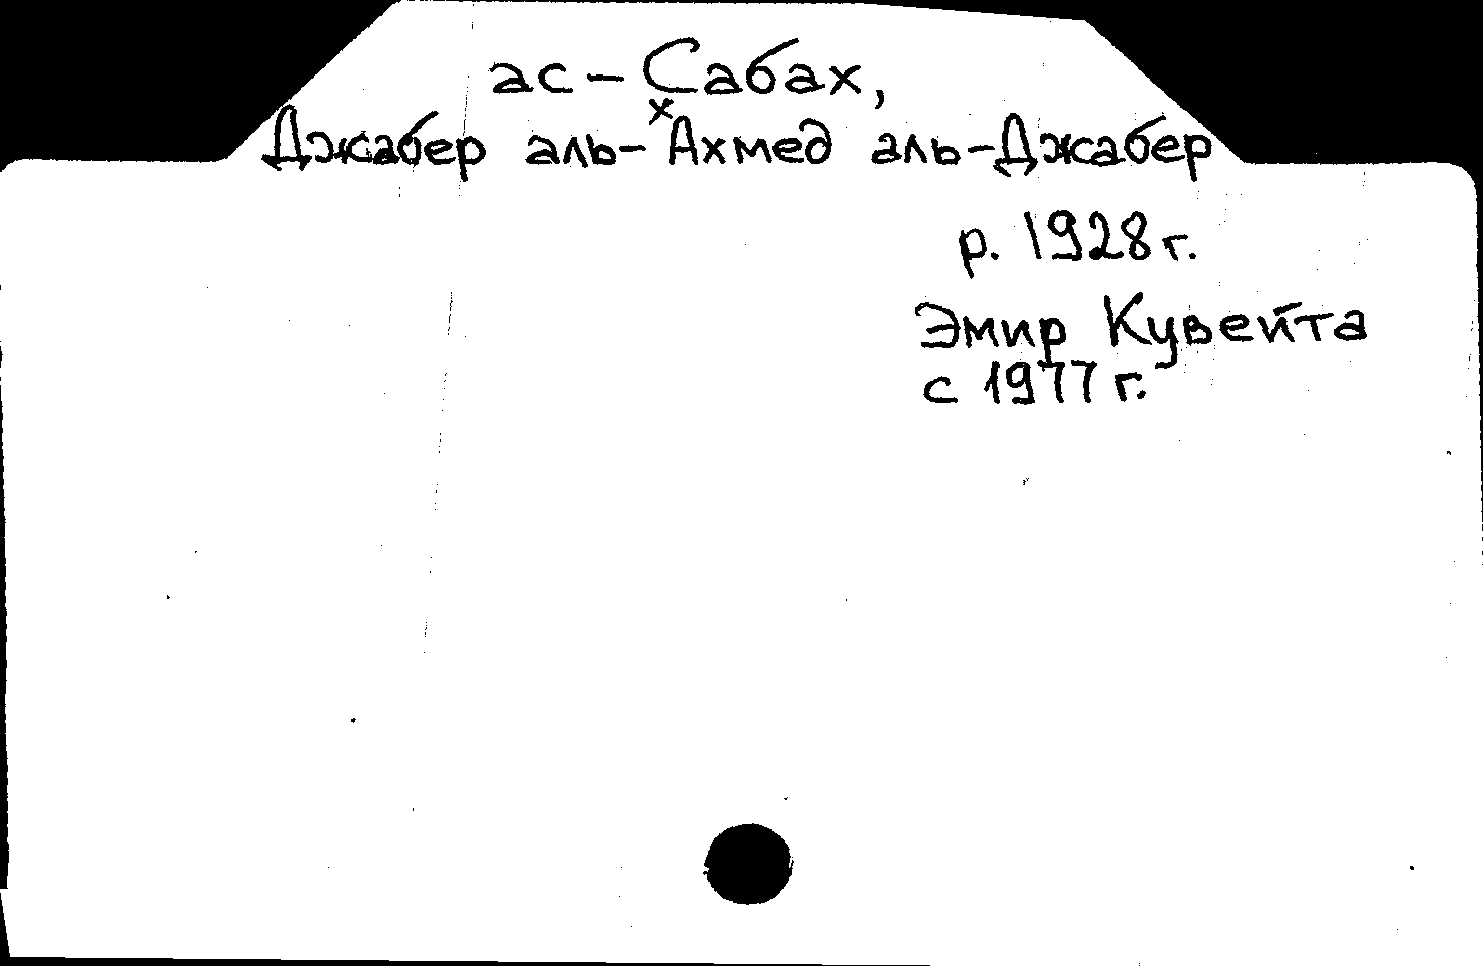 ас-Сабах,
Джабер аль-Ахмед аль-Джабер
р. 1928 г.
Эмир Кувейта
с 1977 г.